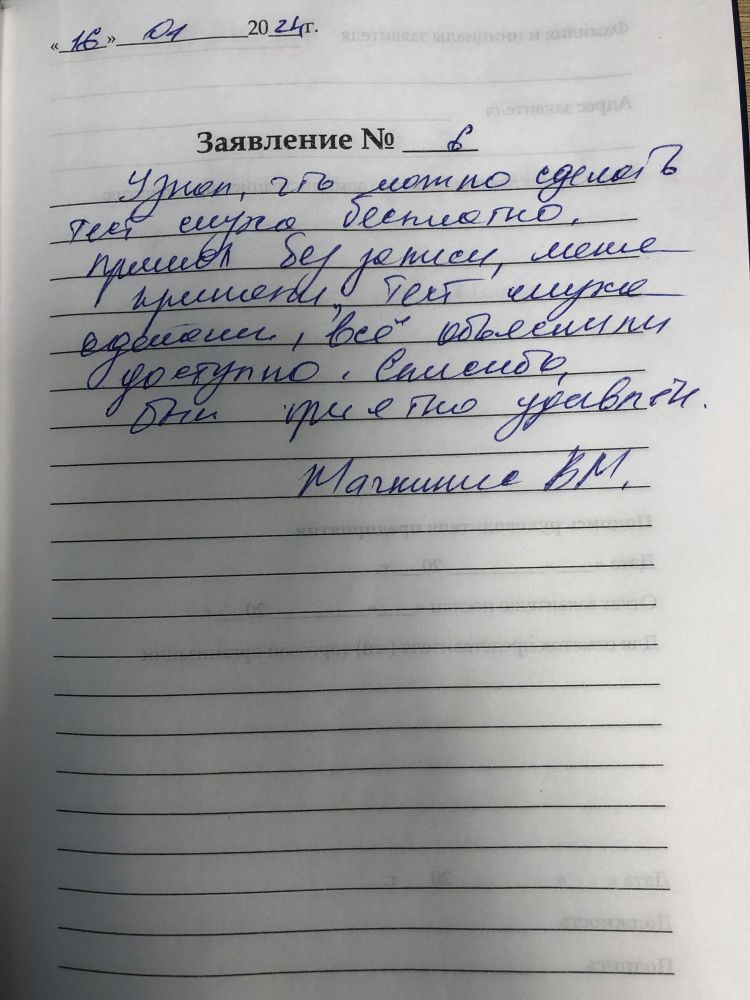 « 16 » 01 2024 г.
Заявление № 6
Узнал, что можно сделать
тест слуха бесплатно,
пришёл без записи, меня
приняли, тест слуха
сделали, всё объяснили
доступно. Спасибо,
был приятно удивлён.
В.М.